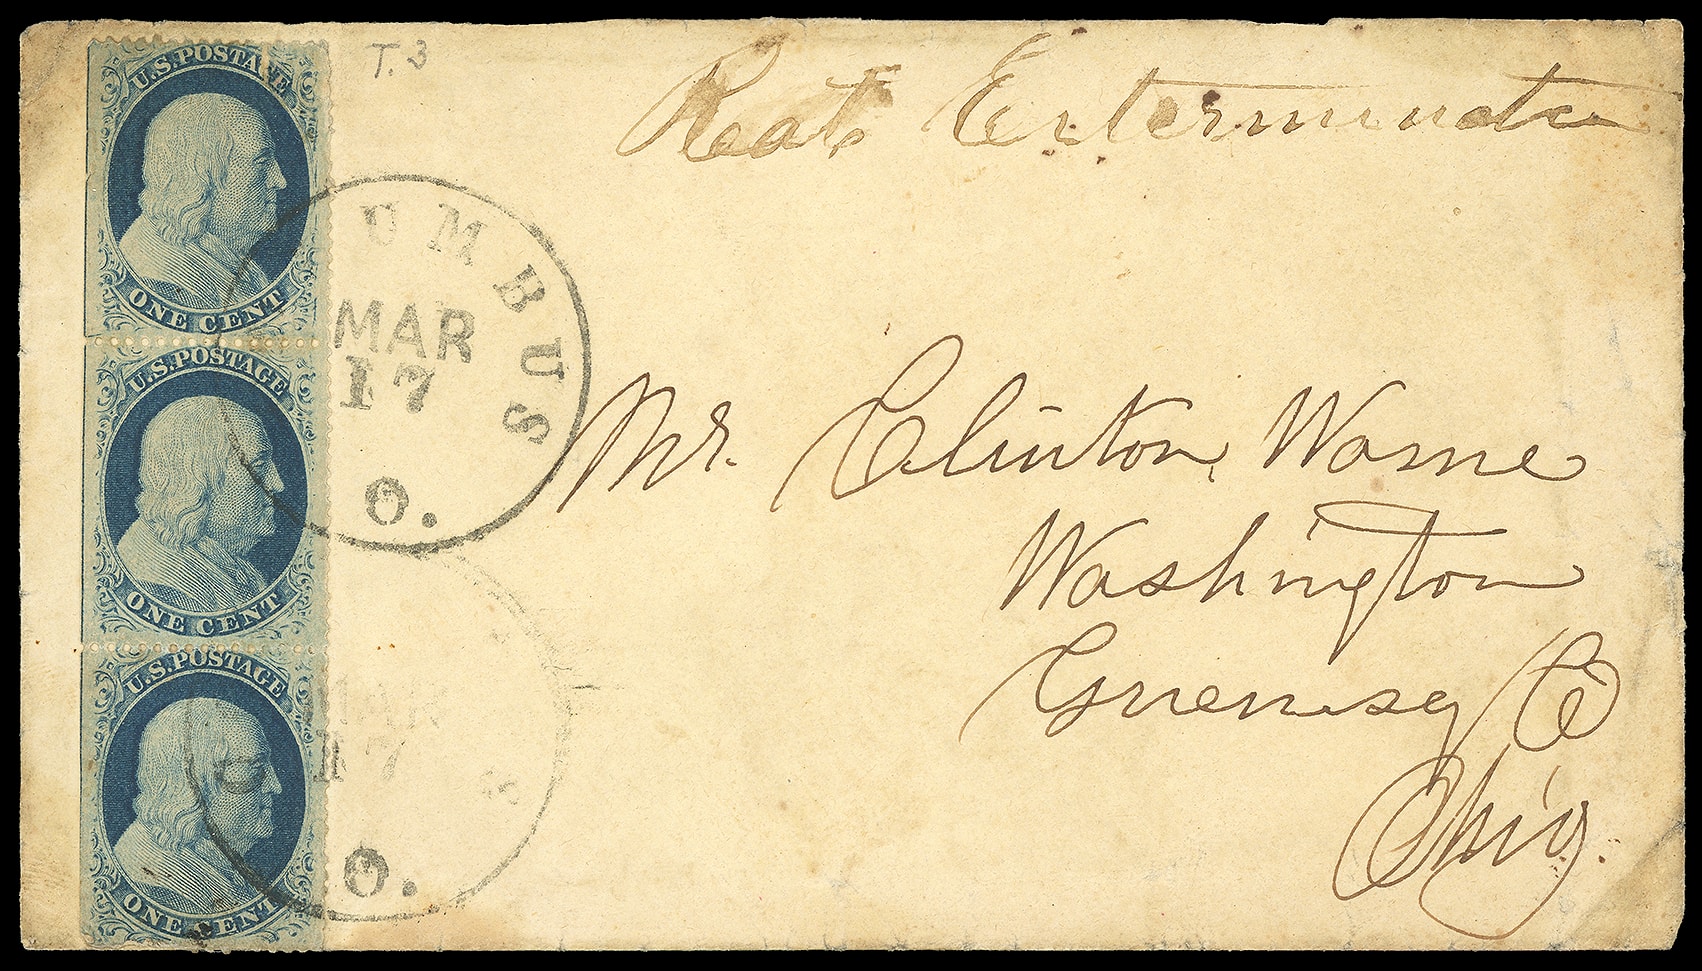 U.S. POSTAGE
ONE CENT
U.S. POSTAGE
ONE CENT
U.S. POSTAGE
ONE CENT
T. 3
Reat Exterminater
UMBUS
MAR
17
O.
MAR
17
O.
Mr. Clinton Warne
Washington
Guernsey Co
Ohio.